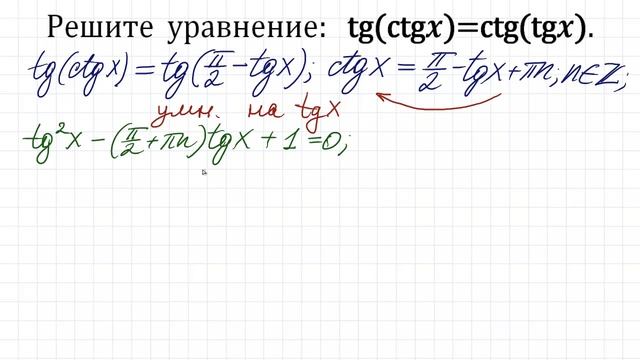 Решите уравнение: tg(ctgx)=ctg(tgx).
tg(ctgx) = tg(π/2 - tgx); ctgx = π/2 - tgx + πn, n∈Z;
умн. на tgx
tg²x - (π/2 + πn)tgx + 1 = 0;